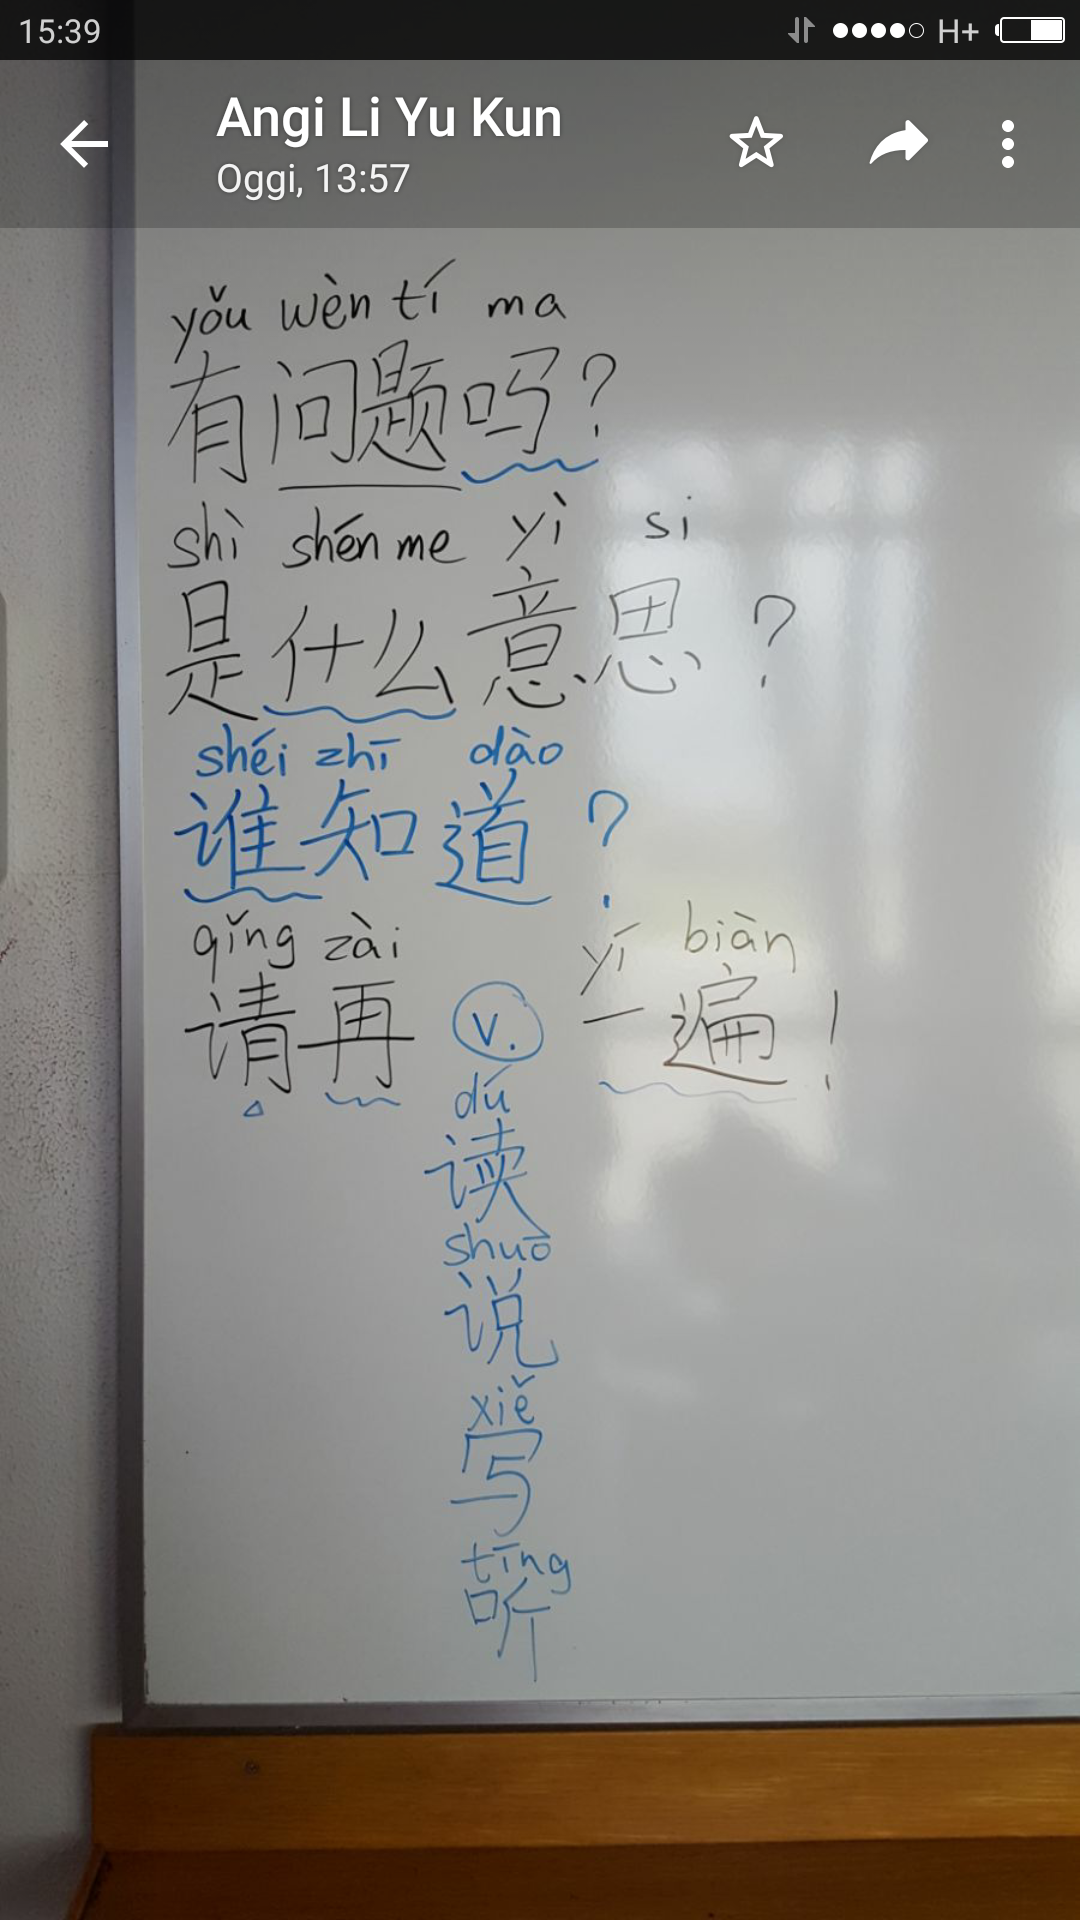 15:39 H+
Angi Li Yu Kun
Oggi, 13:57
yǒu wèn tí ma
有问题吗?
shì shén me yì si
是什么意思?
shéi zhī dào
谁知道?
qǐng zài yí biàn
请再 V. 一遍!
dú
读
shuō
说
xiě
写
tīng
听